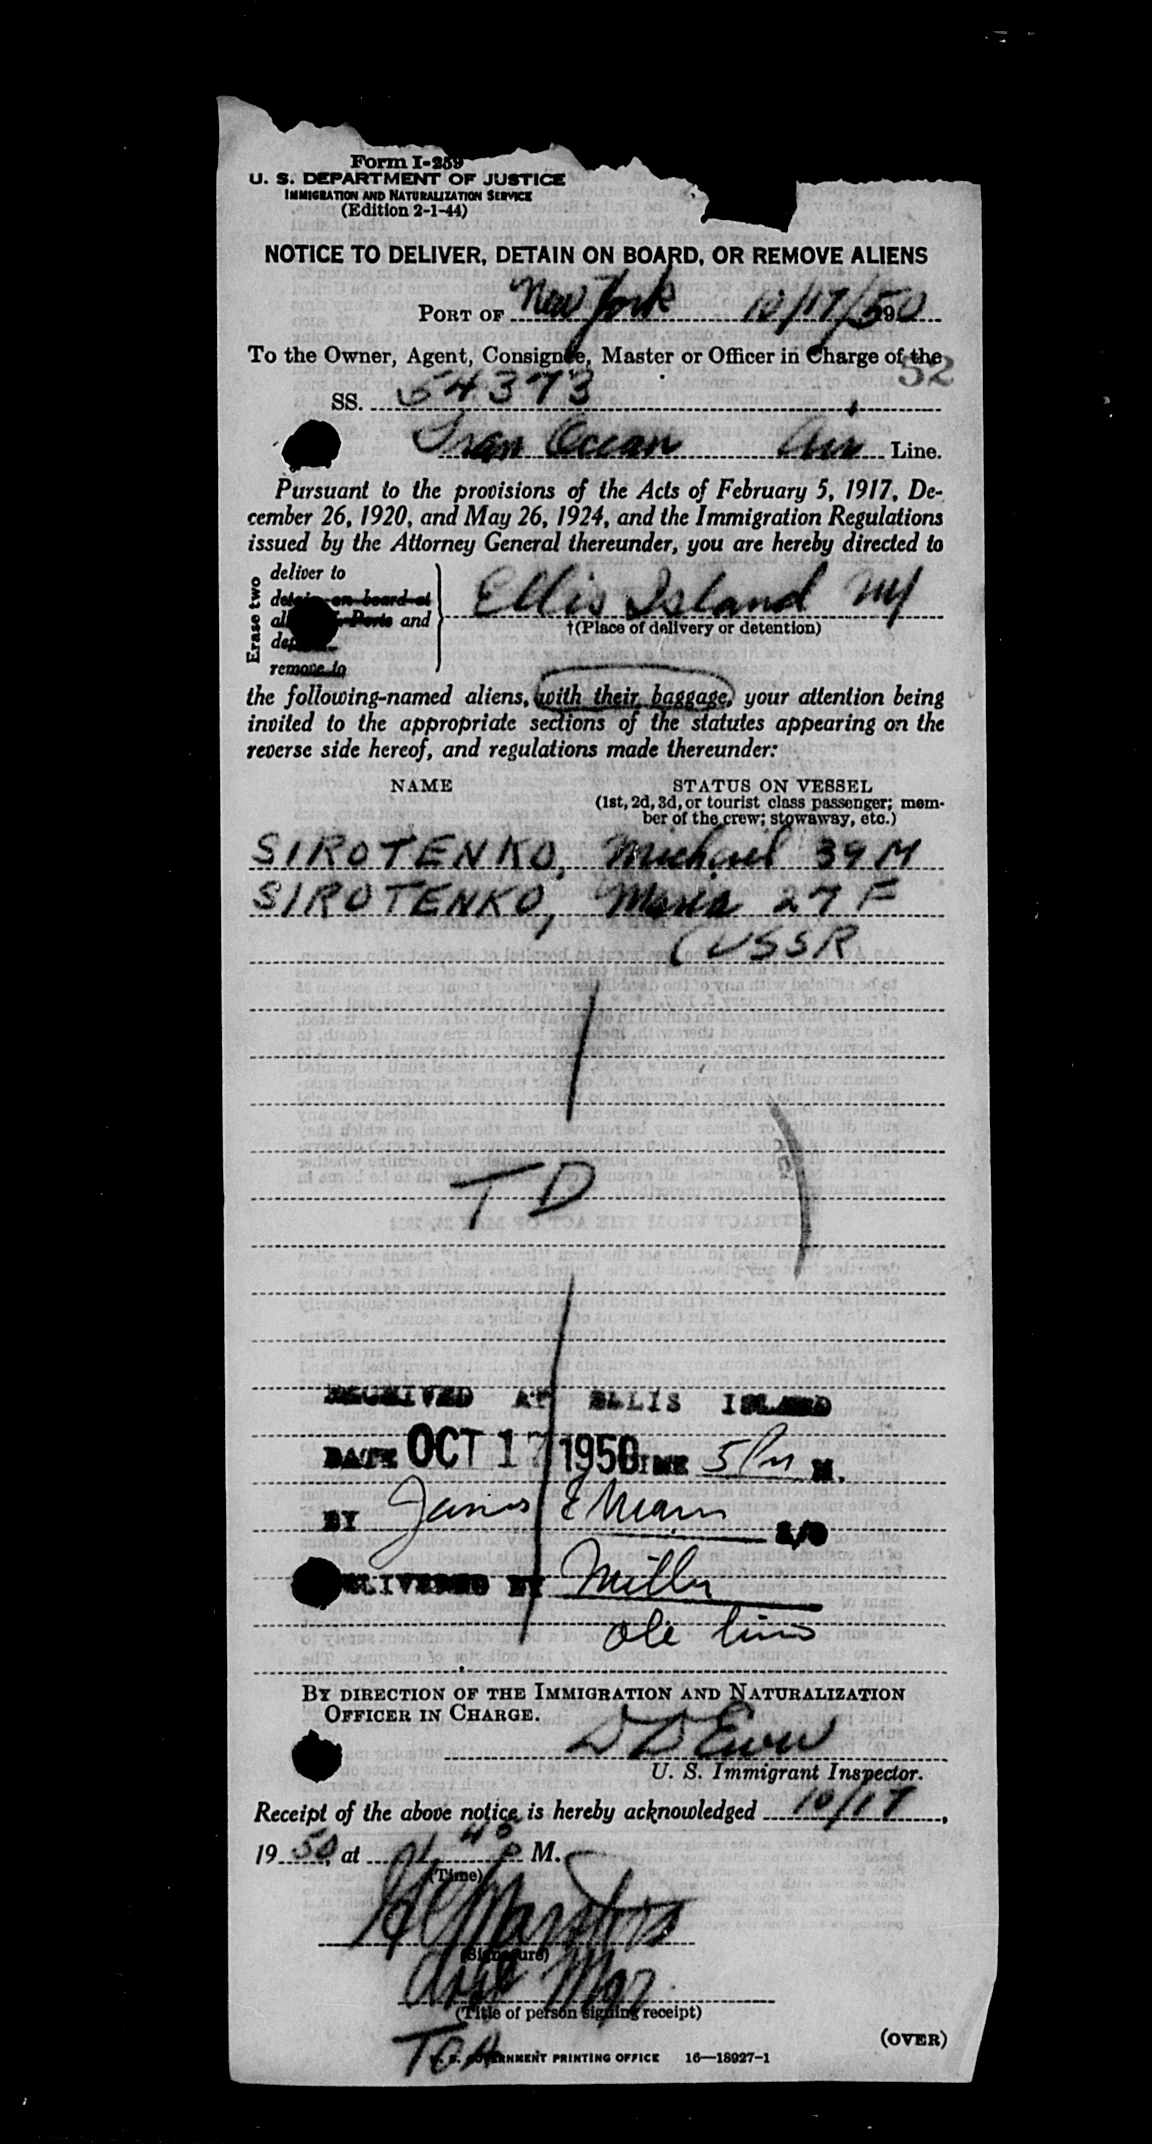 Form I-259
U. S. DEPARTMENT OF JUSTICE
IMMIGRATION AND NATURALIZATION SERVICE
(Edition 2-1-44)
NOTICE TO DELIVER, DETAIN ON BOARD, OR REMOVE ALIENS
PORT OF New York 10/17/50
To the Owner, Agent, Consignee, Master or Officer in Charge of the
52
SS. 54373
Tran Ocean Air Line.
Pursuant to the provisions of the Acts of February 5, 1917, De-
cember 26, 1920, and May 26, 1924, and the Immigration Regulations
issued by the Attorney General thereunder, you are hereby directed to
Erase two
deliver to
detain on board at
and
remove to
Ellis Island NY
†(Place of delivery or detention)
the following-named aliens, with their baggage, your attention being
invited to the appropriate sections of the statutes appearing on the
reverse side hereof, and regulations made thereunder:
NAME STATUS ON VESSEL
(1st, 2d, 3d, or tourist class passenger; mem-
ber of the crew; stowaway, etc.)
SIROTENKO, Michael 39 M
SIROTENKO, Maria 27 F
(USSR
TD
RECEIVED AT ELLIS ISLAND
DATE OCT 17 1950 TIME 5 PM M.
BY James E
DELIVERED BY Miller
BY DIRECTION OF THE IMMIGRATION AND NATURALIZATION
OFFICER IN CHARGE.
U. S. Immigrant Inspector.
Receipt of the above notice is hereby acknowledged 10/17,
19 50, at 1 40 P M.
(Time)
(Signature)
Mgr
(Title of person signing receipt)
TOA
U. S. GOVERNMENT PRINTING OFFICE 16—18927-1
(OVER)